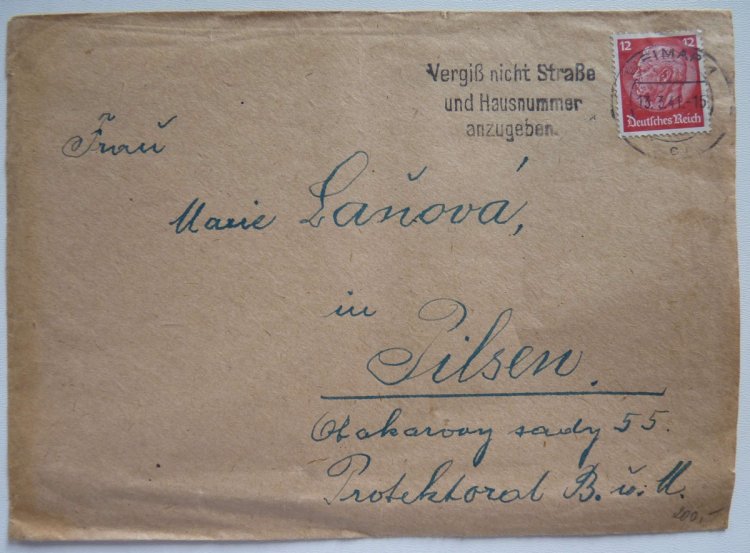 12 12
WEIMAR 1
Vergiß nicht Straße
und Hausnummer
anzugeben.
13.3.41.-15
Deutsches Reich
Frau
Marie Laňová,
in
Pilsen.
Otakarovy sady 55.
Protektorat B. u. M.
200,-